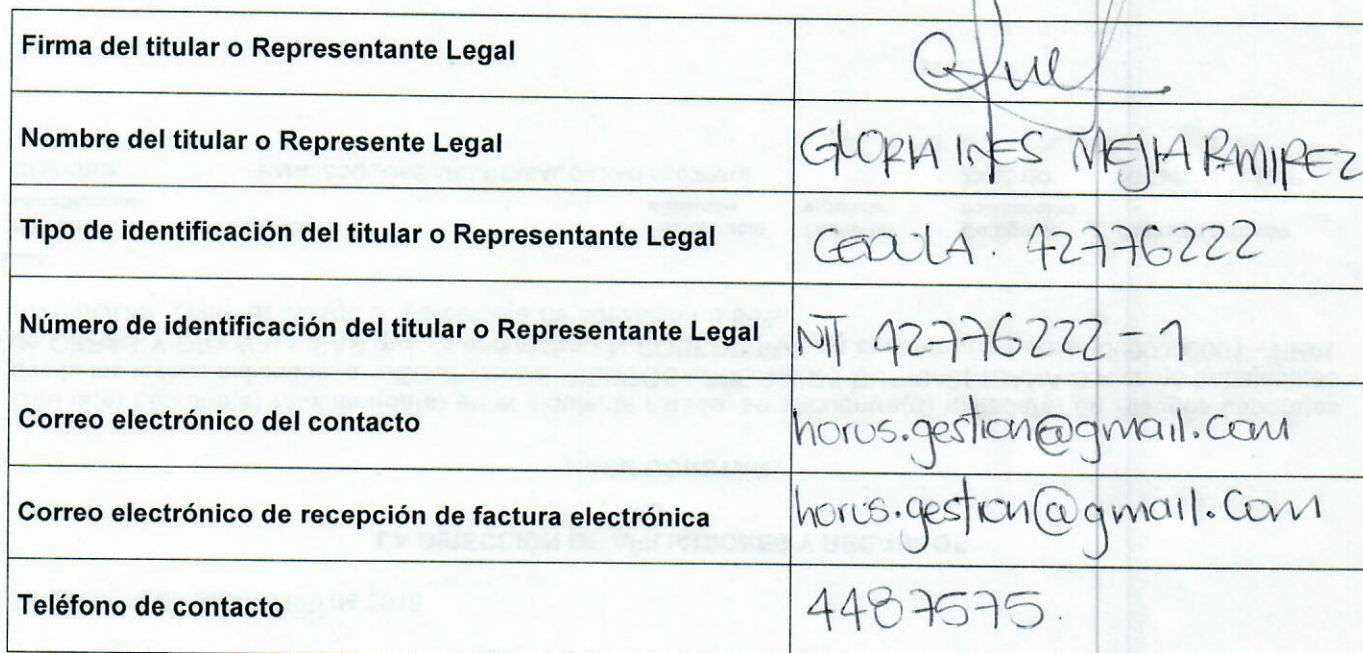 Firma del titular o Representante Legal
Nombre del titular o Represente Legal GLORIA INES MEJIA RAMIREZ
Tipo de identificación del titular o Representante Legal CEDULA. 42776222
Número de identificación del titular o Representante Legal NT 42776222-1
Correo electrónico del contacto horus.gestion@gmail.com
Correo electrónico de recepción de factura electrónica horus.gestion@gmail.com
Teléfono de contacto 4487575.